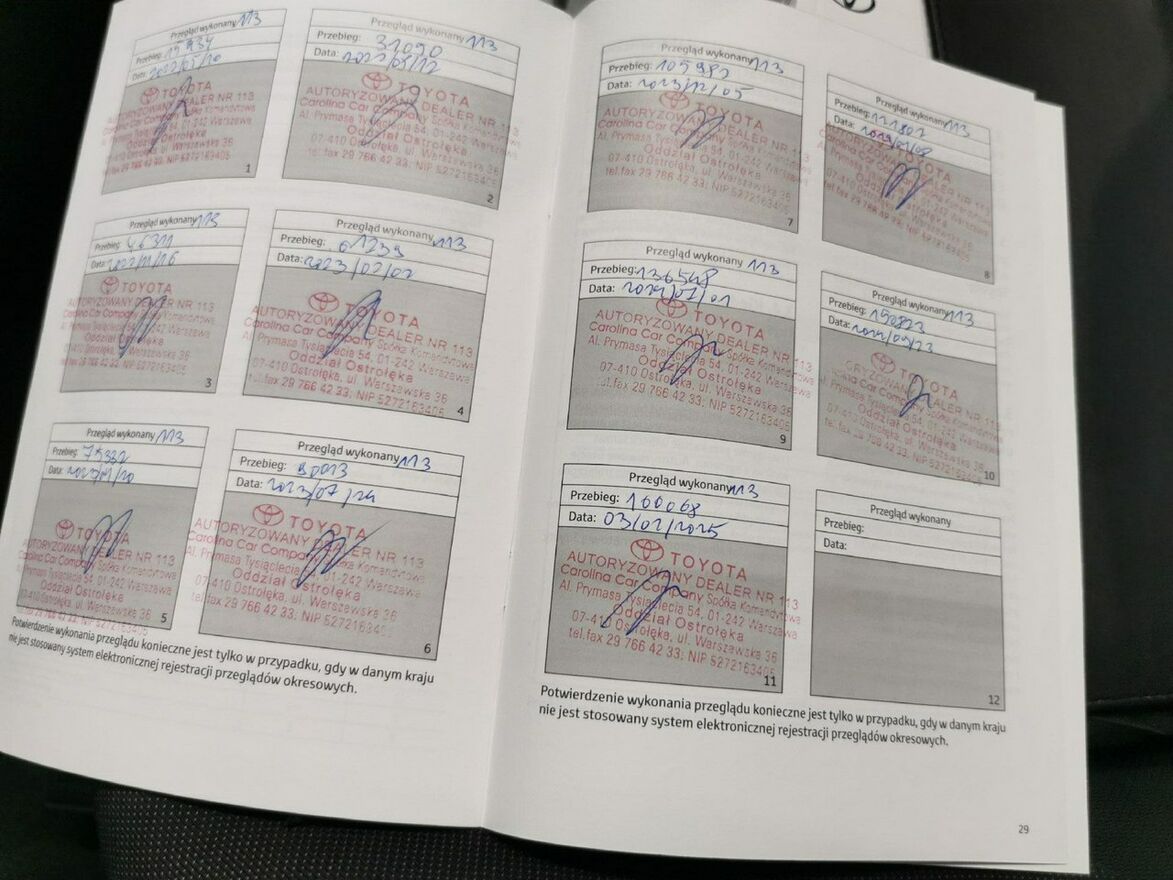 Przegląd wykonany 113
Przebieg: 15934
Data: 2022/05/10
TOYOTA
AUTORYZOWANY DEALER NR 113
Carolina Car Company Spółka Komandytowa
Al. Prymasa Tysiąclecia 54, 01-242 Warszawa
Oddział Ostrołęka
07-410 Ostrołęka, ul. Warszawska 36
tel.fax 29 766 42 33; NIP 5272163405
1
Przegląd wykonany 113
Przebieg: 31090
Data: 2022/08/12
TOYOTA
AUTORYZOWANY DEALER NR 113
Carolina Car Company Spółka Komandytowa
Al. Prymasa Tysiąclecia 54, 01-242 Warszawa
Oddział Ostrołęka
07-410 Ostrołęka, ul. Warszawska 36
tel.fax 29 766 42 33; NIP 5272163405
2
Przegląd wykonany 113
Przebieg: 46311
Data: 2022/11/16
TOYOTA
AUTORYZOWANY DEALER NR 113
Carolina Car Company Spółka Komandytowa
Al. Prymasa Tysiąclecia 54, 01-242 Warszawa
Oddział Ostrołęka
07-410 Ostrołęka, ul. Warszawska 36
tel.fax 29 766 42 33; NIP 5272163405
3
Przegląd wykonany 113
Przebieg: 61239
Data: 2023/02/02
TOYOTA
AUTORYZOWANY DEALER NR 113
Carolina Car Company Spółka Komandytowa
Al. Prymasa Tysiąclecia 54, 01-242 Warszawa
Oddział Ostrołęka
07-410 Ostrołęka, ul. Warszawska 36
tel.fax 29 766 42 33; NIP 5272163405
4
Przegląd wykonany 113
Przebieg: 75332
Data:
TOYOTA
AUTORYZOWANY DEALER NR 113
Carolina Car Company Spółka Komandytowa
Al. Prymasa Tysiąclecia 54, 01-242 Warszawa
Oddział Ostrołęka
07-410 Ostrołęka, ul. Warszawska 36
tel.fax 29 766 42 33; NIP 5272163405
5
Przegląd wykonany 113
Przebieg: 90013
Data: 2023/07/24
TOYOTA
AUTORYZOWANY DEALER NR 113
Carolina Car Company Spółka Komandytowa
Al. Prymasa Tysiąclecia 54, 01-242 Warszawa
Oddział Ostrołęka
07-410 Ostrołęka, ul. Warszawska 36
tel.fax 29 766 42 33; NIP 5272163405
6
Potwierdzenie wykonania przeglądu konieczne jest tylko w przypadku, gdy w danym kraju
nie jest stosowany system elektronicznej rejestracji przeglądów okresowych.
Przegląd wykonany 113
Przebieg: 105982
Data: 2023/12/05
TOYOTA
AUTORYZOWANY DEALER NR 113
Carolina Car Company Spółka Komandytowa
Al. Prymasa Tysiąclecia 54, 01-242 Warszawa
Oddział Ostrołęka
07-410 Ostrołęka, ul. Warszawska 36
tel.fax 29 766 42 33; NIP 5272163405
7
Przegląd wykonany 113
Przebieg: 121802
Data:
TOYOTA
AUTORYZOWANY DEALER NR 113
Carolina Car Company Spółka Komandytowa
Al. Prymasa Tysiąclecia 54, 01-242 Warszawa
Oddział Ostrołęka
07-410 Ostrołęka, ul. Warszawska 36
tel.fax 29 766 42 33; NIP 5272163405
8
Przegląd wykonany 113
Przebieg: 136548
Data: 2024/07/01
TOYOTA
AUTORYZOWANY DEALER NR 113
Carolina Car Company Spółka Komandytowa
Al. Prymasa Tysiąclecia 54, 01-242 Warszawa
Oddział Ostrołęka
07-410 Ostrołęka, ul. Warszawska 36
tel.fax 29 766 42 33; NIP 5272163405
9
Przegląd wykonany 113
Przebieg: 150823
Data: 2024/09/23
TOYOTA
ORYZOWANY DEALER NR 113
Car Company Spółka Komandytowa
Prymasa Tysiąclecia 54, 01-242 Warszawa
Oddział Ostrołęka
07-410 Ostrołęka, ul. Warszawska 36
tel.fax 29 766 42 33; NIP 5272163405
10
Przegląd wykonany 113
Przebieg: 160068
Data: 03/02/2025
TOYOTA
AUTORYZOWANY DEALER NR 113
Carolina Car Company Spółka Komandytowa
Al. Prymasa Tysiąclecia 54, 01-242 Warszawa
Oddział Ostrołęka
07-410 Ostrołęka, ul. Warszawska 36
tel.fax 29 766 42 33; NIP 5272163405
11
Przegląd wykonany
Przebieg:
Data:
12
Potwierdzenie wykonania przeglądu konieczne jest tylko w przypadku, gdy w danym kraju
nie jest stosowany system elektronicznej rejestracji przeglądów okresowych.
29